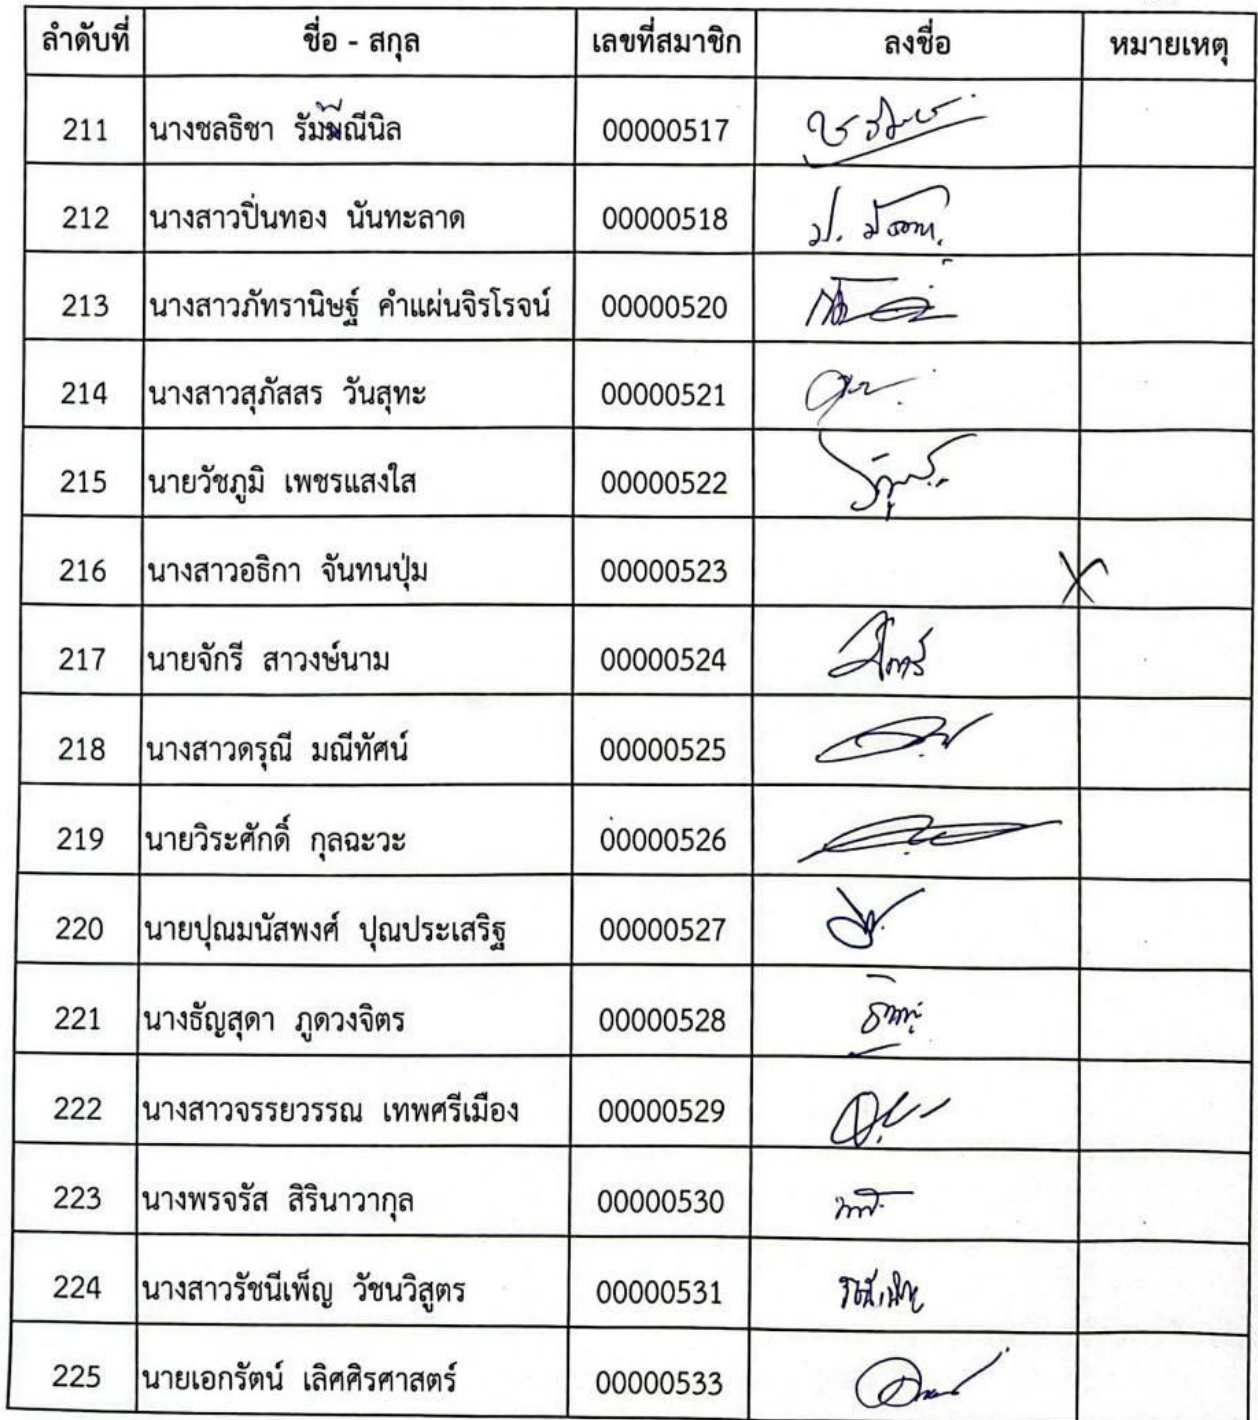 ลำดับที่ ชื่อ - สกุล เลขที่สมาชิก ลงชื่อ หมายเหตุ
211 นางชลธิชา รัมมณีนิล 00000517
212 นางสาวปิ่นทอง นันทะลาด 00000518
213 นางสาวภัทรานิษฐ์ คำแผ่นจิรโรจน์ 00000520
214 นางสาวสุภัสสร วันสุทะ 00000521
215 นายวัชภูมิ เพชรแสงใส 00000522
216 นางสาวอธิกา จันทนปุ่ม 00000523
217 นายจักรี สาวงษ์นาม 00000524
218 นางสาวดรุณี มณีทัศน์ 00000525
219 นายวิระศักดิ์ กุลฉะวะ 00000526
220 นายปุณมนัสพงศ์ ปุณประเสริฐ 00000527
221 นางธัญสุดา ภูดวงจิตร 00000528
222 นางสาวจรรยวรรณ เทพศรีเมือง 00000529
223 นางพรจรัส สิรินาวากุล 00000530
224 นางสาวรัชนีเพ็ญ วัชนวิสูตร 00000531
225 นายเอกรัตน์ เลิศศิรศาสตร์ 00000533